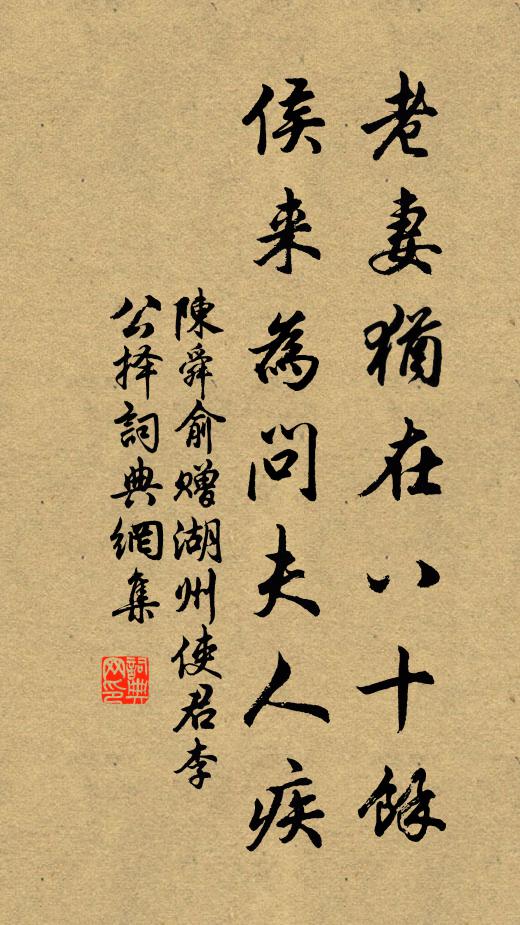 老妻猶在八十餘
侯来為問夫人疾
陳舜俞赠湖州使君李
公择詞典網集
詞典網印